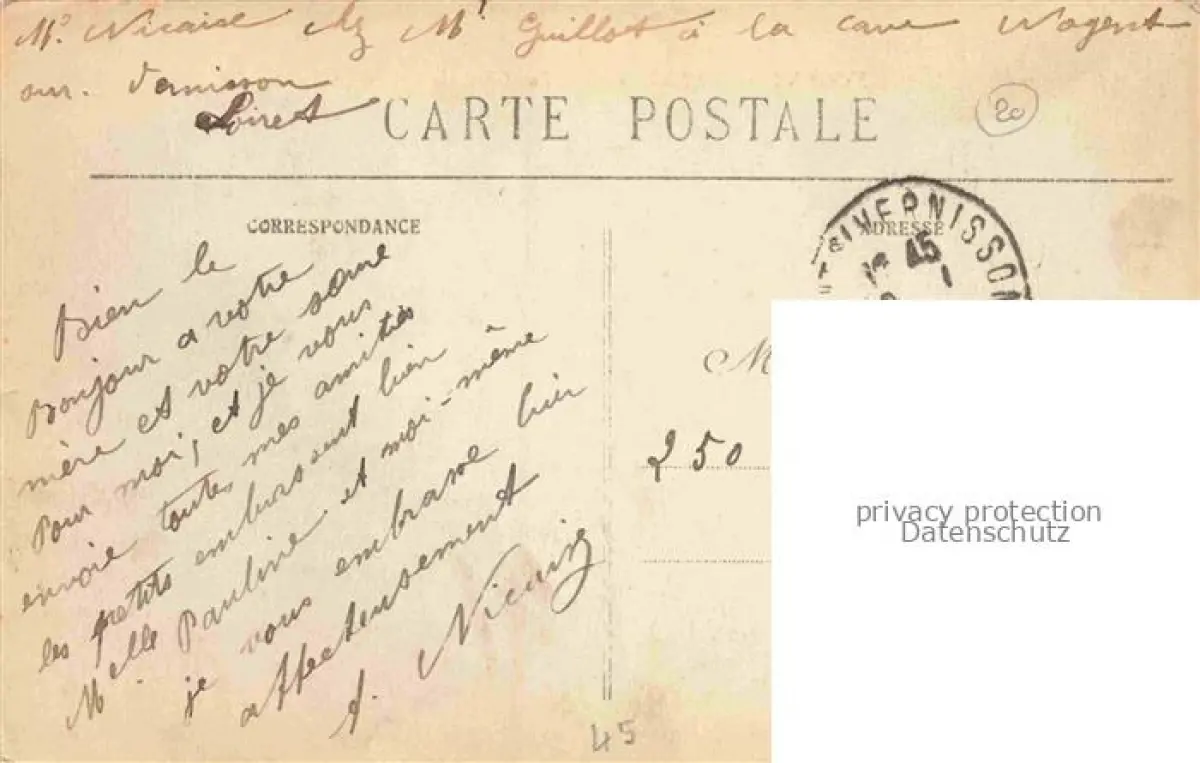 Mr. Nicaise chz Mr Guillot à la cave Nogent
sur. Vernisson
Loiret
CARTE POSTALE
20
CORRESPONDANCE
Bien le
Bonjour a votre
mère et votre soeur
pour moi, et je vous
envoie toutes mes amitiés
les petits embrassent bien
Melle Pauline et moi-même
je vous embrasse bien
affectueusement
Nicaise
45
ADRESSE
VERNISSON
45
M
250
privacy protection
Datenschutz